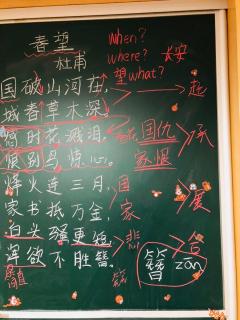 春望
杜甫
国破山河在,
城春草木深。
感时花溅泪,
恨别鸟惊心。
烽火连三月,
家书抵万金,
白头骚更短,
浑欲不胜簪。
when?
where?
望 what?
长安
起
国仇
家恨
承
国
家
展
悲
合
簪
zān